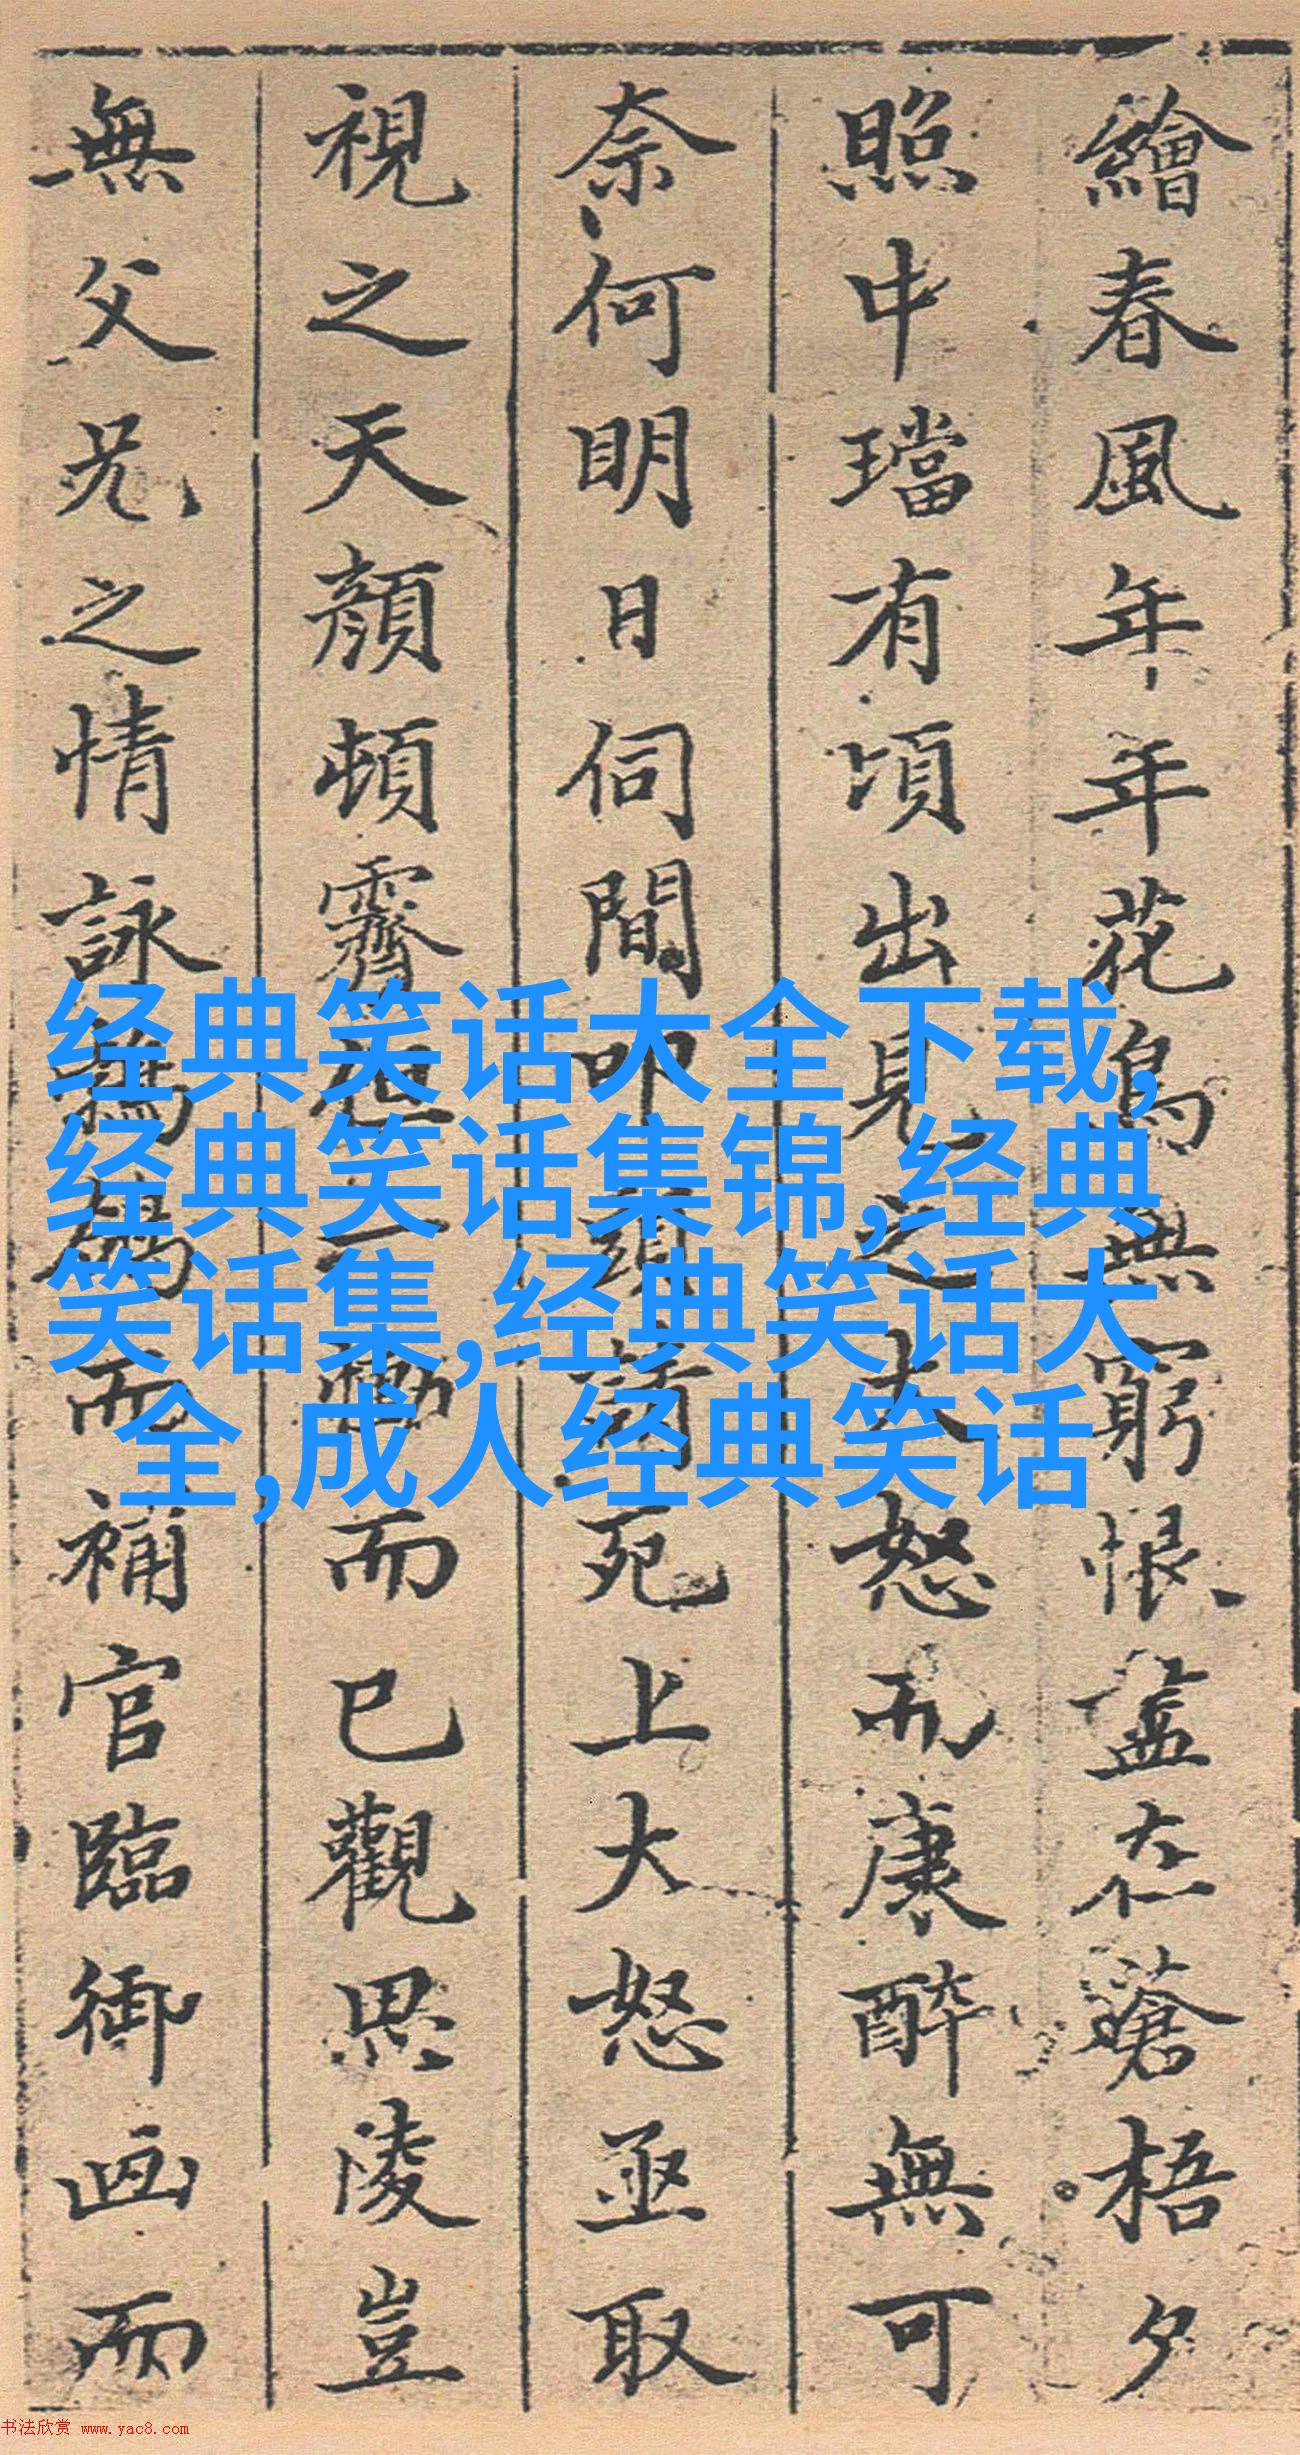 繪春風年年花鳥無窮恨盡在蒼梧夕
照中璫有頃出見之大怒而康醉無可
奈何明日伺間叩頭請死上大怒亟取
視之天顏頓霽但一慟而已觀思陵豈
無父兄之情詠而補官臨御画而
经典笑话大全下载,
经典笑话集锦,经典
笑话集,经典笑话大
全,成人经典笑话
书法欣赏 www.yac8.com